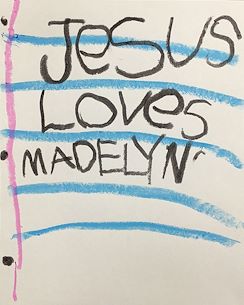 JeSUS
Loves
MADELYN